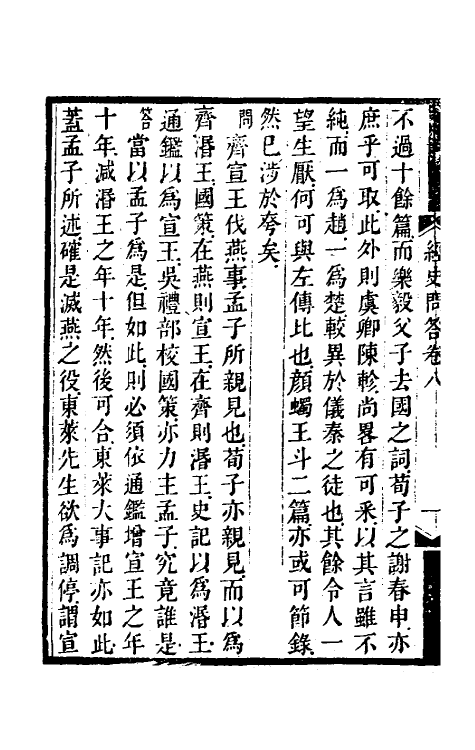 經史問答卷八
一
不過十餘篇而樂毅父子去國之詞荀子之謝春申亦
庶乎可取此外則虞卿陳軫尚畧有可采以其言雖不
純而一爲趙一爲楚較異於儀秦之徒也其餘令人一
望生厭何可與左傳比也顔蠋王斗二篇亦或可節錄
然已涉於夸矣
問齊宣王伐燕事孟子所親見也荀子亦親見而以爲
齊湣王國策在燕則宣王在齊則湣王史記以爲湣王
通鑑以爲宣王吳禮部校國策亦力主孟子究竟誰是
答當以孟子爲是但如此則必須依通鑑增宣王之年
十年減湣王之年十年然後可合東萊大事記亦如此
蓋孟子所述確是滅燕之役東萊先生欲爲調停謂宣